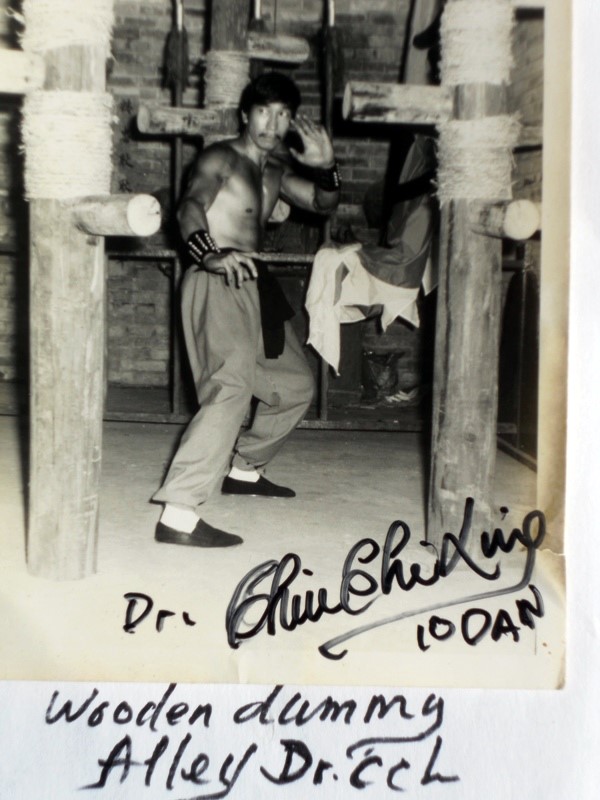 Dr. Chiu Chi Ling
10 DAN
Wooden dummy
Alley Dr. CCL